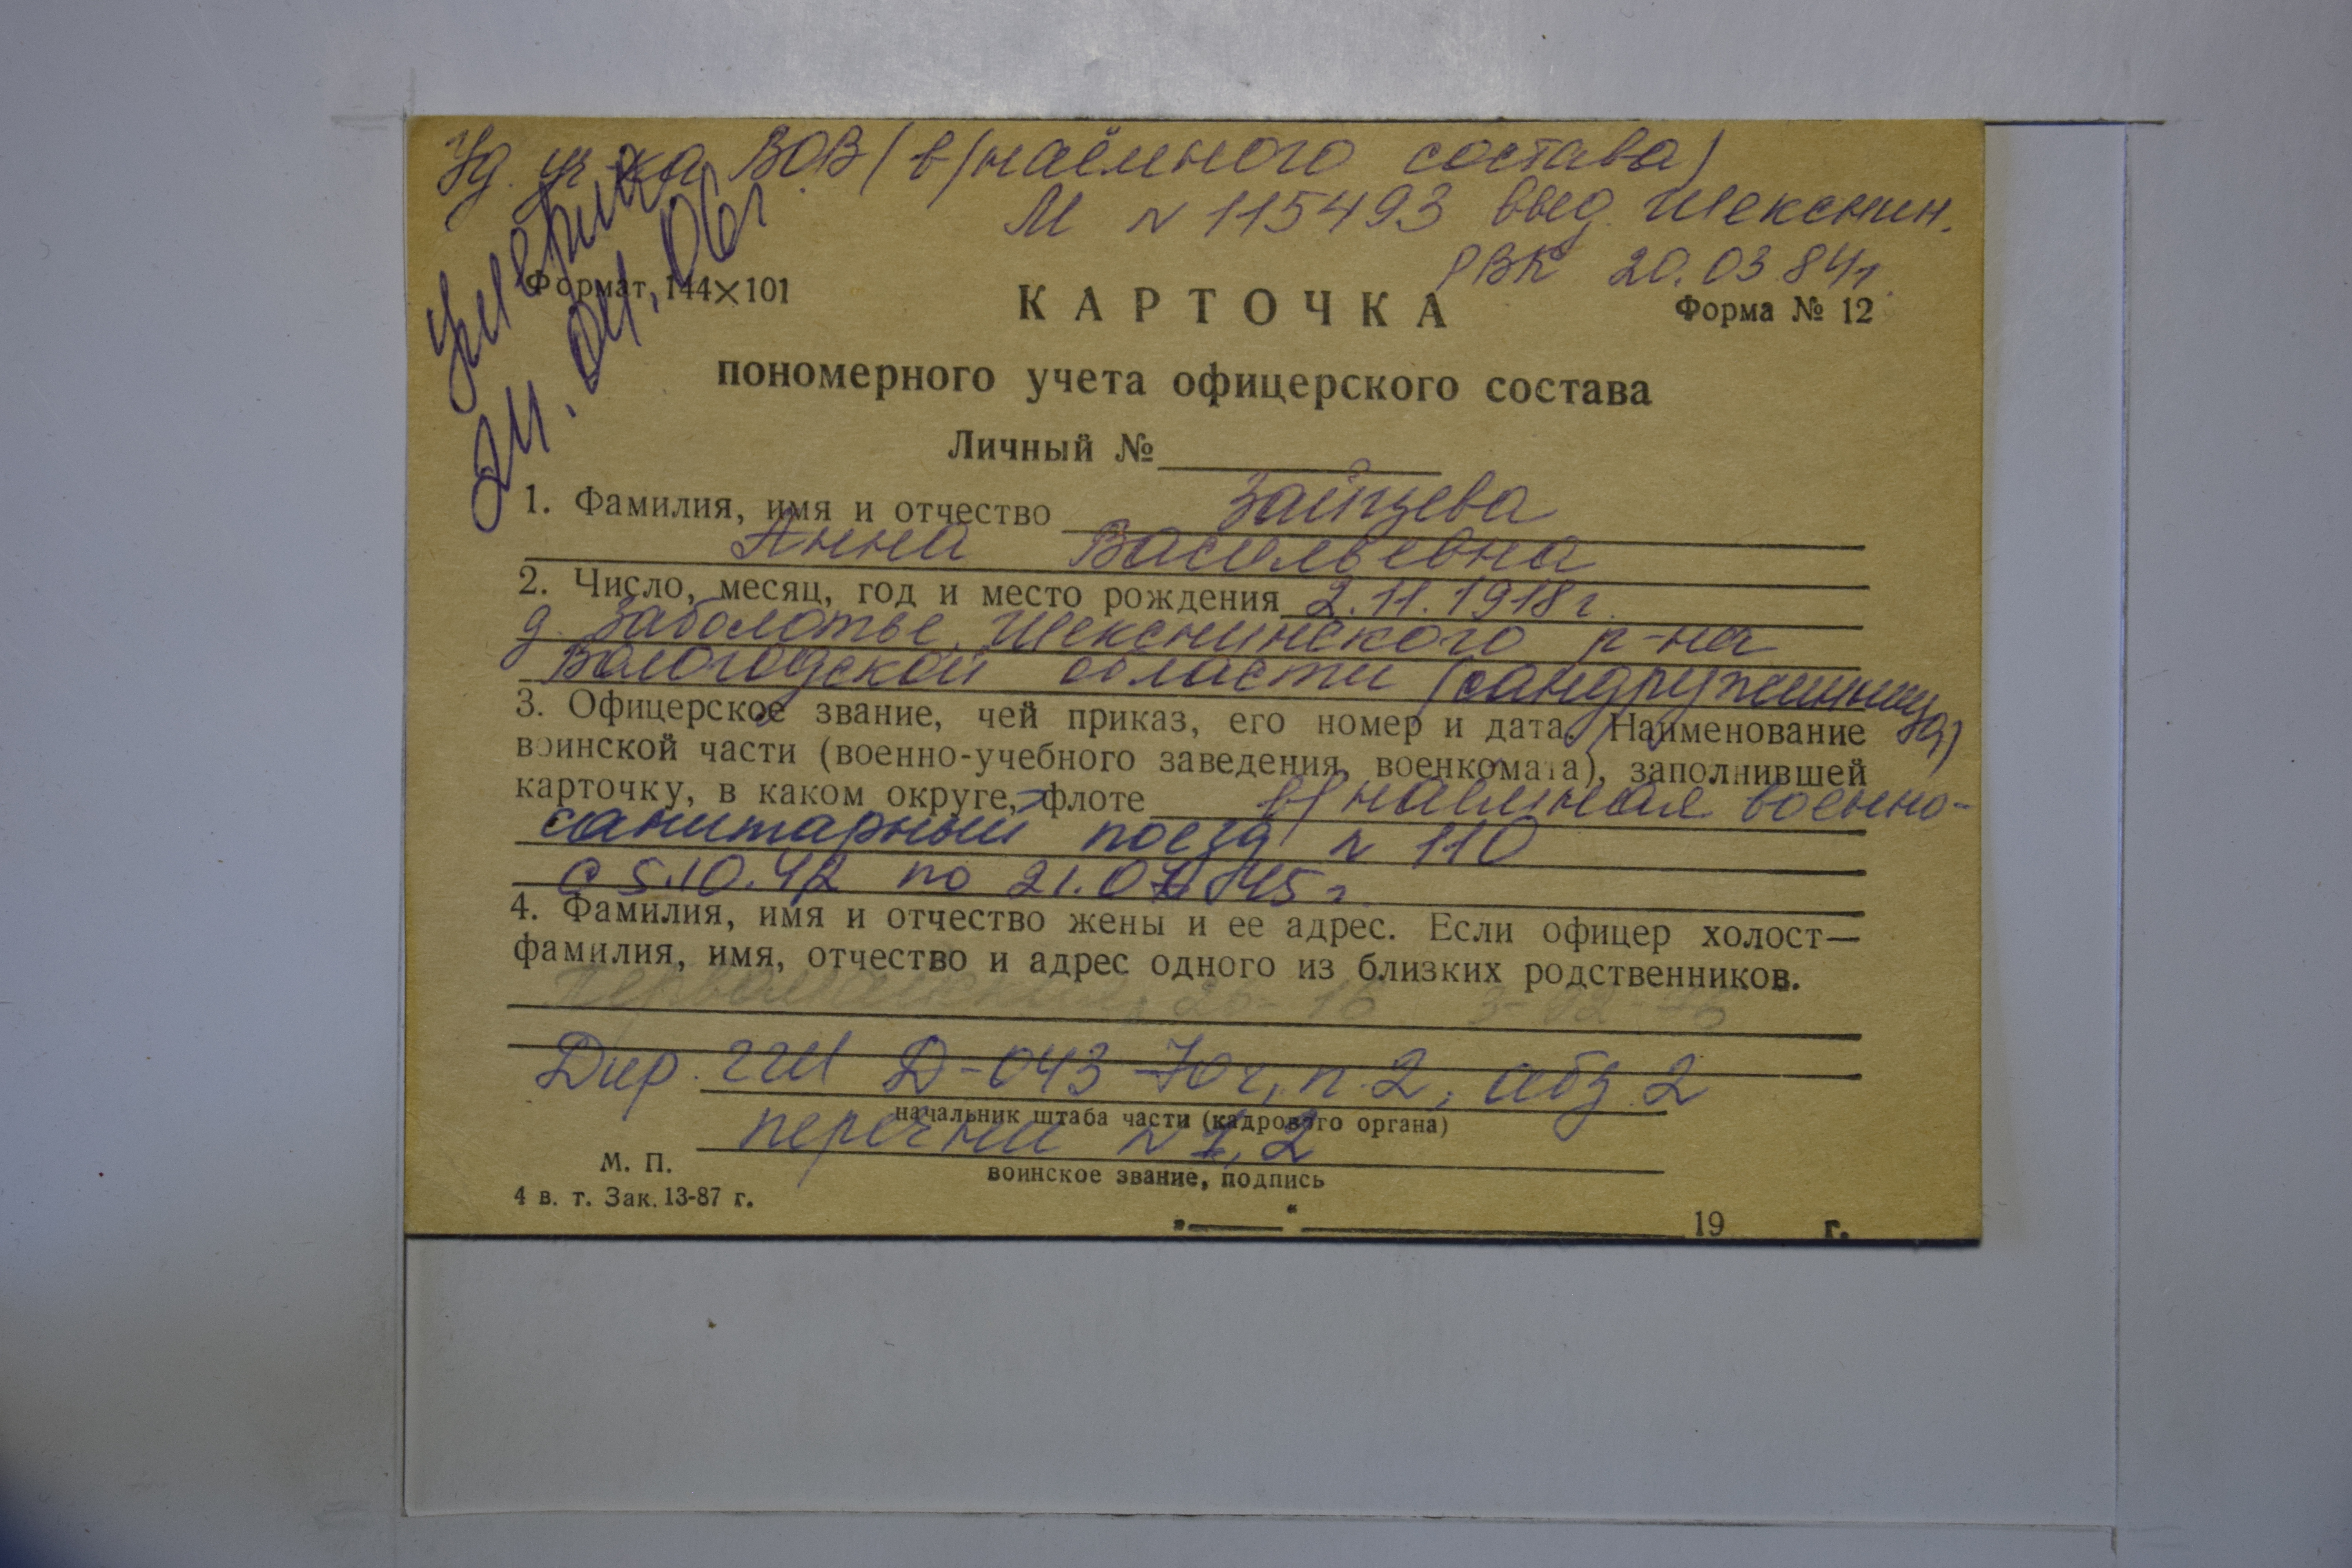 Уд. уч-ка ВОВ (в/наёмного состава)
М N 115493 выд. Шекснин.
РВК 20.03.84г.
умерла
24.04.06г.
Формат 144×101
КАРТОЧКА
Форма № 12
пономерного учета офицерского состава
Личный №
1. Фамилия, имя и отчество Зайцева
Анна Васильевна
2. Число, месяц, год и место рождения 2.11.1918г.
д. Заболотье, Шекснинского р-на
Вологодской области (сандружинница)
3. Офицерское звание, чей приказ, его номер и дата. Наименование
воинской части (военно-учебного заведения, военкомата), заполнившей
карточку, в каком округе, флоте в/наёмная военно-
санитарный поезд N 110
с 5.10.42 по 21.07.45г.
4. Фамилия, имя и отчество жены и ее адрес. Если офицер холост—
фамилия, имя, отчество и адрес одного из близких родственников.
Первомайская,
Дир. ГШ Д-043 70г, п. 2, абз. 2
начальник штаба части (кадрового органа)
перечни N 1, 2
М. П.
воинское звание, подпись
4 в. т. Зак. 13-87 г.
„ “ 19 г.